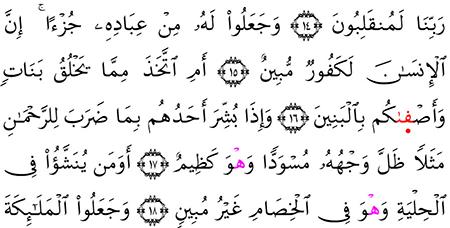 رَبِّنَا لَمُنقَلِبُونَ ﴿١٤﴾ وَجَعَلُواْ لَهُۥ مِنْ عِبَادِهِۦ جُزْءًا ۚ إِنَّ
ٱلْإِنسَـٰنَ لَكَفُورٌ مُّبِينٌ ﴿١٥﴾ أَمِ ٱتَّخَذَ مِمَّا يَخْلُقُ بَنَاتٍ
وَأَصْفَىٰكُم بِٱلْبَنِينَ ﴿١٦﴾ وَإِذَا بُشِّرَ أَحَدُهُم بِمَا ضَرَبَ لِلرَّحْمَـٰنِ
مَثَلًا ظَلَّ وَجْهُهُۥ مُسْوَدًّا وَهْوَ كَظِيمٌ ﴿١٧﴾ أَوَمَن يَنشَؤُاْ فِى
ٱلْحِلْيَةِ وَهْوَ فِى ٱلْخِصَامِ غَيْرُ مُبِينٍ ﴿١٨﴾ وَجَعَلُواْ ٱلْمَلَـٰٓئِكَةَ